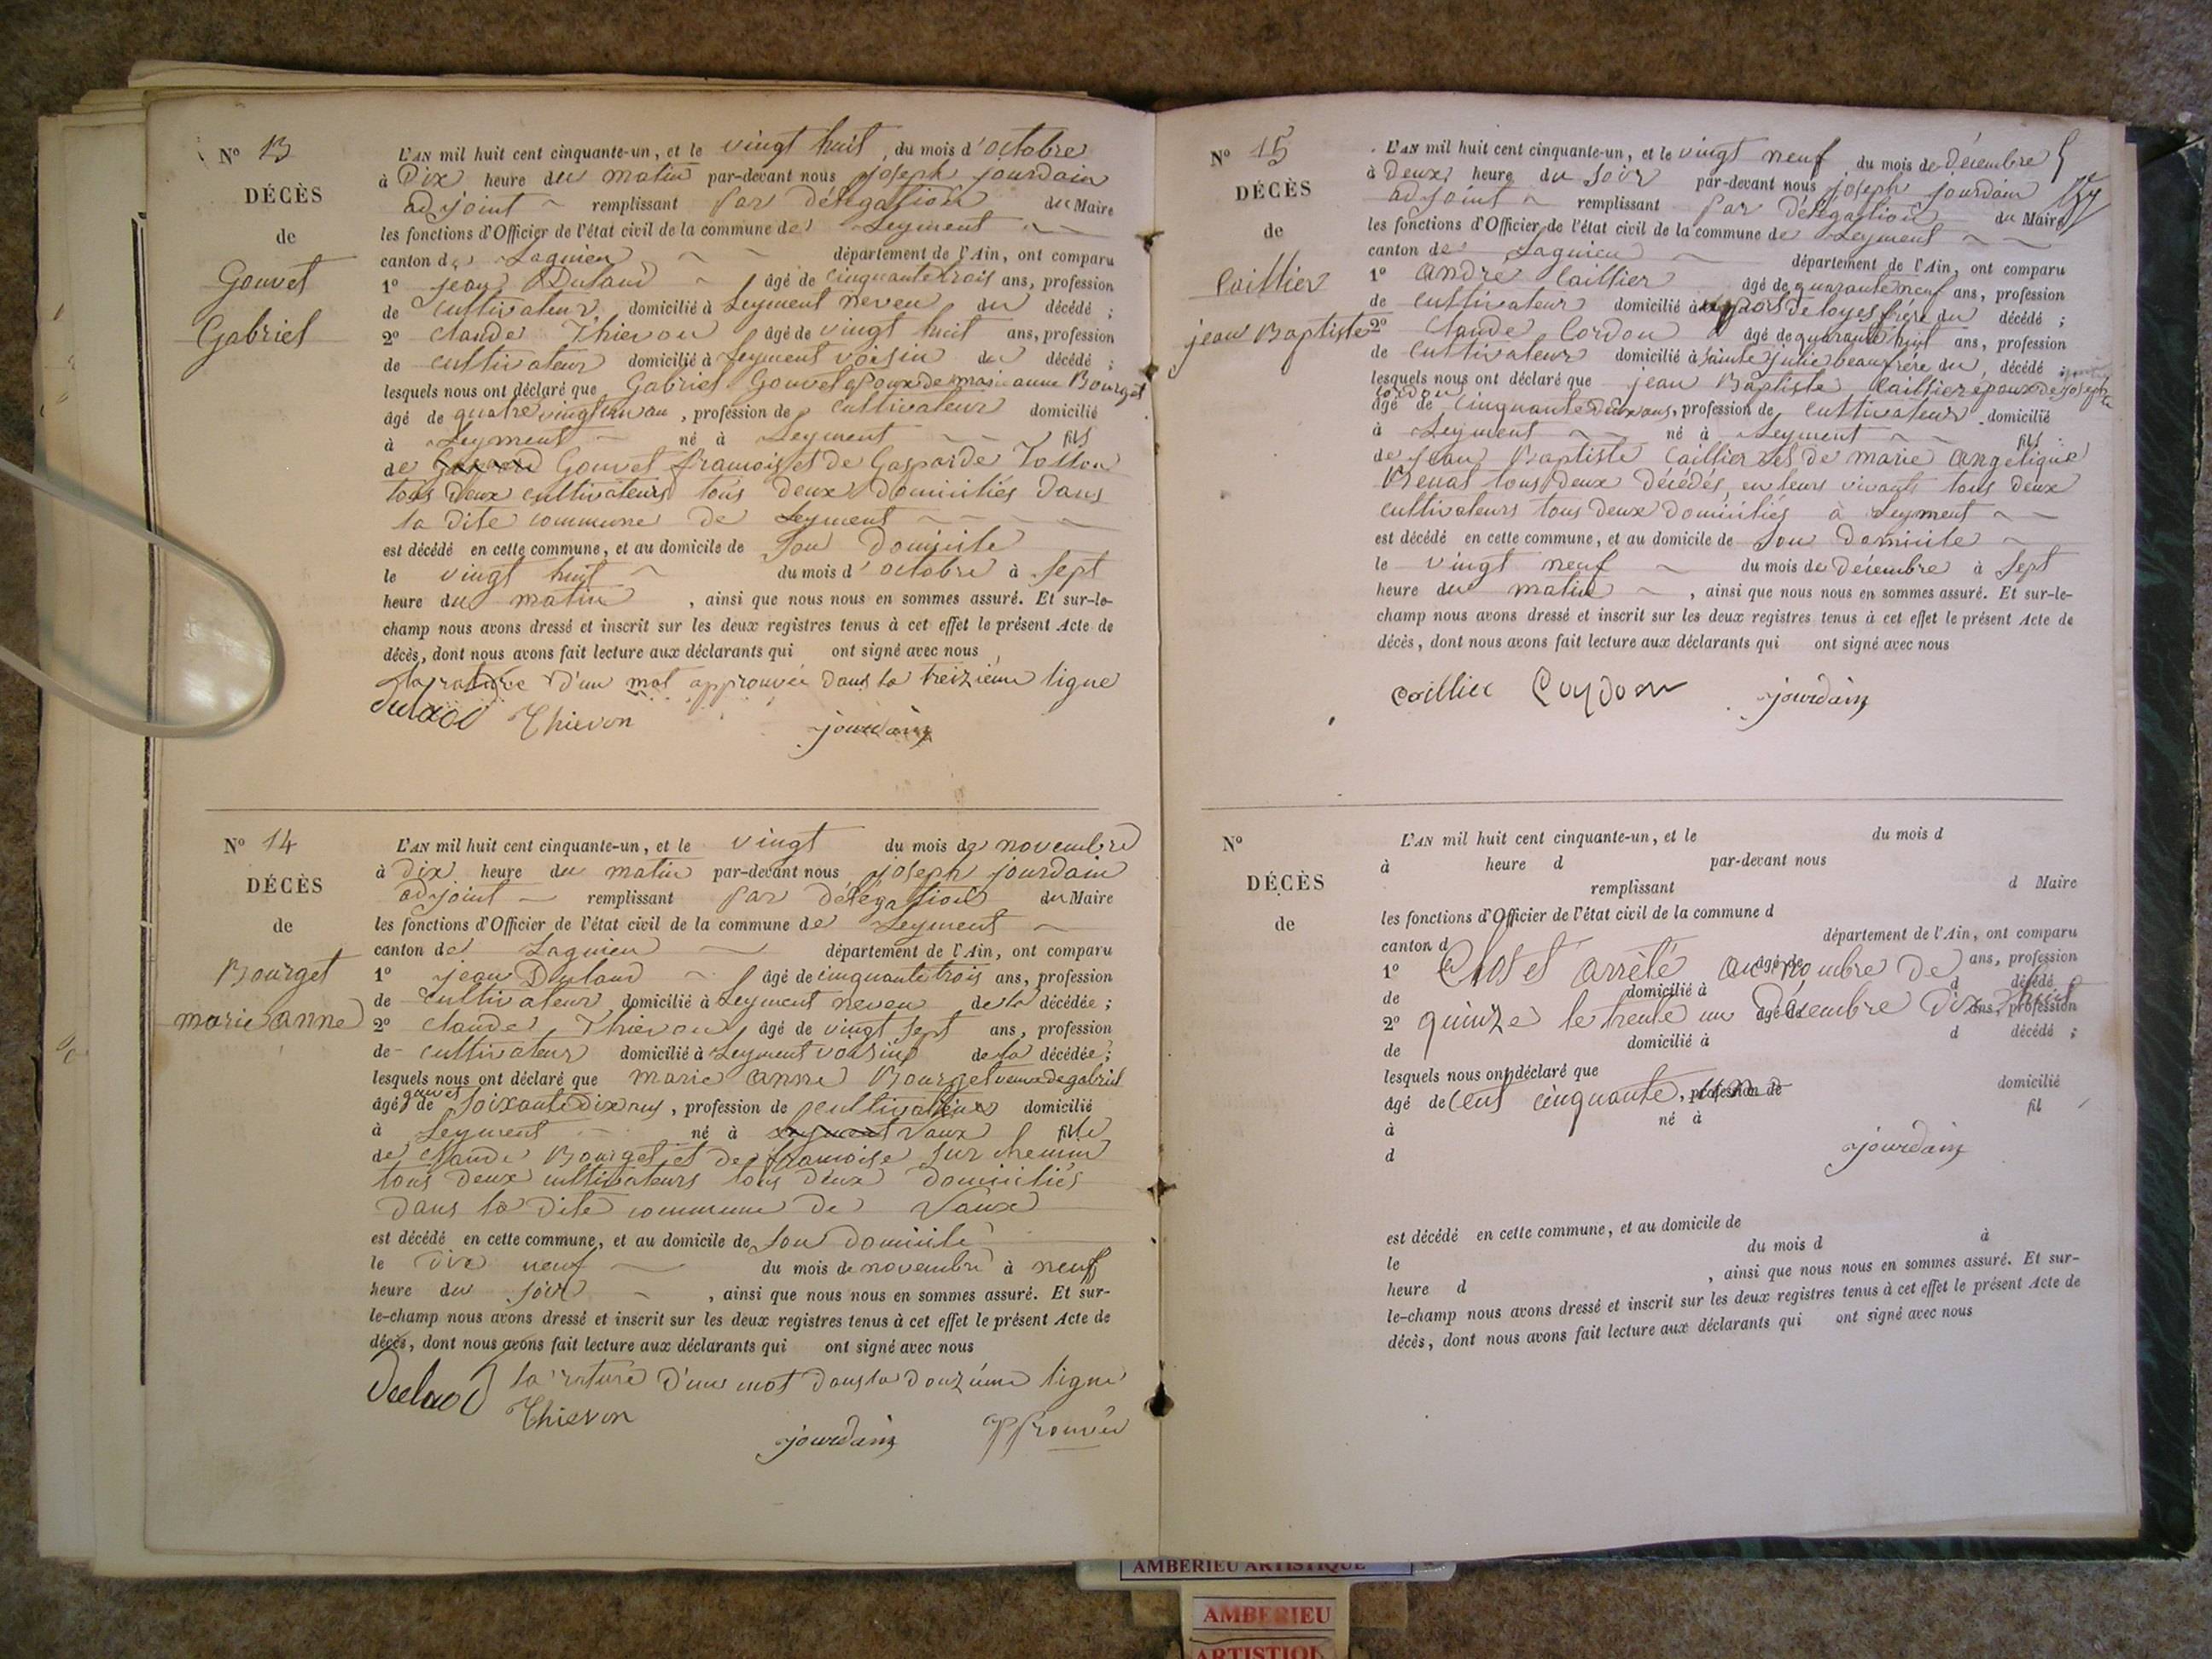 N° 13
DÉCÈS
de
Gouvet
Gabriel
L'AN mil huit cent cinquante-un, et le vingt huit, du mois d'octobre
à Dix heure du matin par-devant nous joseph jourdain
adjoint remplissant par délégation du Maire
les fonctions d'Officier de l'état civil de la commune de Leyment
canton de Lagnieu département de l'Ain, ont comparu
1° jean Dulaud âgé de cinquante trois ans, profession
de cultivateur domicilié à Leyment neveu du décédé ;
2° claude Thievon âgé de vingt huit ans, profession
de cultivateur domicilié à Leyment voisin du décédé ;
lesquels nous ont déclaré que Gabriel Gouvet epoux de marie anne Bourget
âgé de quatre vingt un an, profession de cultivateur domicilié
à Leyment né à Leyment fils
de Gouvet francois et de Gasparde Tollon
tous deux cultivateurs tous deux Domiciliés dans
la dite commune de Leyment
est décédé en cette commune, et au domicile de son Domicile
le vingt huit du mois d'octobre à sept
heure du matin, ainsi que nous nous en sommes assuré. Et sur-le-
champ nous avons dressé et inscrit sur les deux registres tenus à cet effet le présent Acte de
décès, dont nous avons fait lecture aux déclarants qui ont signé avec nous
la rature d'un mot approuvée dans la treizième ligne
Thievon jourdain
N° 14
DÉCÈS
de
Bourget
marie anne
L'AN mil huit cent cinquante-un, et le vingt du mois de novembre
à dix heure du matin par-devant nous joseph jourdain
adjoint remplissant par délégation du Maire
les fonctions d'Officier de l'état civil de la commune de Leyment
canton de Lagnieu département de l'Ain, ont comparu
1° jean Dulaud âgé de cinquante trois ans, profession
de cultivateur domicilié à Leyment neveu de la décédée ;
2° claude Thievon âgé de vingt sept ans, profession
de cultivateur domicilié à Leyment voisin de la décédée ;
lesquels nous ont déclaré que marie anne Bourget veuve de gabriel
gouvet
âgé de soixante Dix ans, profession de cultivateur domicilié
à Leyment né à Leyment Vaux fille
de claude Bourget et de francoise Sur chemin
tous deux cultivateurs tous deux Domiciliés
dans la dite commune de Vaux
est décédé en cette commune, et au domicile de son domicile
le Dix neuf du mois de novembre à neuf
heure du soir, ainsi que nous nous en sommes assuré. Et sur-
le-champ nous avons dressé et inscrit sur les deux registres tenus à cet effet le présent Acte de
décès, dont nous avons fait lecture aux déclarants qui ont signé avec nous
la rature d'un mot dans la douzième ligne
Thievon
jourdain approuvée
N° 15
DÉCÈS
de
Caillier
jean Baptiste
L'AN mil huit cent cinquante-un, et le vingt neuf du mois de décembre
à deux heure du soir par-devant nous joseph jourdain
adjoint remplissant par délégation du Maire
les fonctions d'Officier de l'état civil de la commune de Leyment
canton de Lagnieu département de l'Ain, ont comparu
1° andré Caillier âgé de quarante neuf ans, profession
de cultivateur domicilié à de loyes frère du décédé ;
2° claude Cordon âgé de quarante huit ans, profession
de cultivateur domicilié à sainte julie beaufrére du décédé ;
lesquels nous ont déclaré que jean Baptiste Caillier epoux de josephte
cordon
âgé de cinquante deux ans, profession de cultivateur domicilié
à Leyment né à Leyment fils
de jean Baptiste Caillier et de marie angelique
Renat tous deux décédés, en leurs vivants tous deux
cultivateurs tous deux domiciliés à Leyment
est décédé en cette commune, et au domicile de son domicile
le vingt neuf du mois de décembre à sept
heure du matin, ainsi que nous nous en sommes assuré. Et sur-le-
champ nous avons dressé et inscrit sur les deux registres tenus à cet effet le présent Acte de
décès, dont nous avons fait lecture aux déclarants qui ont signé avec nous
caillier Cordon jourdain
N°
DÉCÈS
de
L'AN mil huit cent cinquante-un, et le du mois d
à heure d par-devant nous
remplissant d Maire
les fonctions d'Officier de l'état civil de la commune d
canton d département de l'Ain, ont comparu
Clos et arrêté au nombre de
1° âgé de ans, profession
de domicilié à d décédé
quinze le trente un décembre dix huit
2° âgé de ans, profession
de domicilié à d décédé ;
lesquels nous ont déclaré que
cent cinquante, un
âgé de profession de domicilié
à né à fil
d
jourdain
est décédé en cette commune, et au domicile de
le du mois d à
heure d, ainsi que nous nous en sommes assuré. Et sur-
le-champ nous avons dressé et inscrit sur les deux registres tenus à cet effet le présent Acte de
décès, dont nous avons fait lecture aux déclarants qui ont signé avec nous
AMBERIEU ARTISTIQUE
AMBERIEU